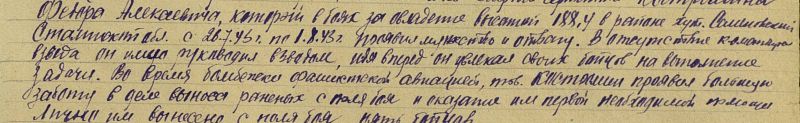 Федора Алексеевича, который в боях за овладение высотой 188,4 в районе хут. Семеновский
Сталинск. обл. с 28.7.43 г. по 1.8.43 г. проявил мужество и отвагу. В отсутствие командира
взвода он умело руководил взводом, идя вперед он увлекал своих бойцов на выполнение
задачи. Во время бомбежки фашистской авиацией, тов. Костромин проявил большую
заботу в деле выноса раненых с поля боя и оказания им первой необходимой помощи
Лично им вынесено с поля боя пять бойцов